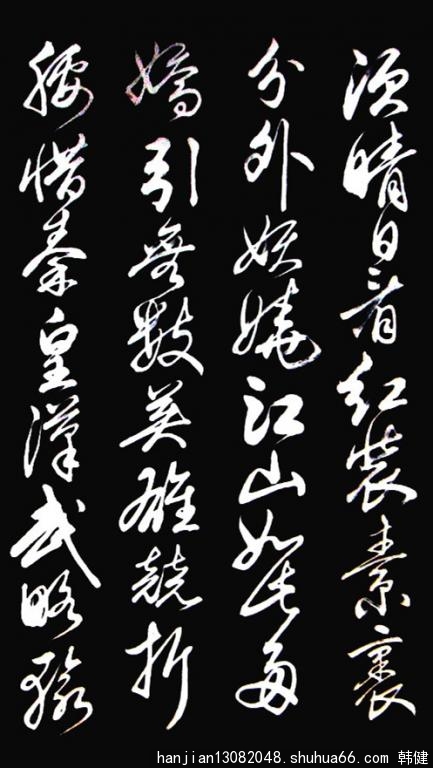 须晴日看红装素裹
分外妖娆江山如此多
娇引无数英雄竞折
腰惜秦皇汉武略输
hanjian13082048.shuhua66.com 韩健